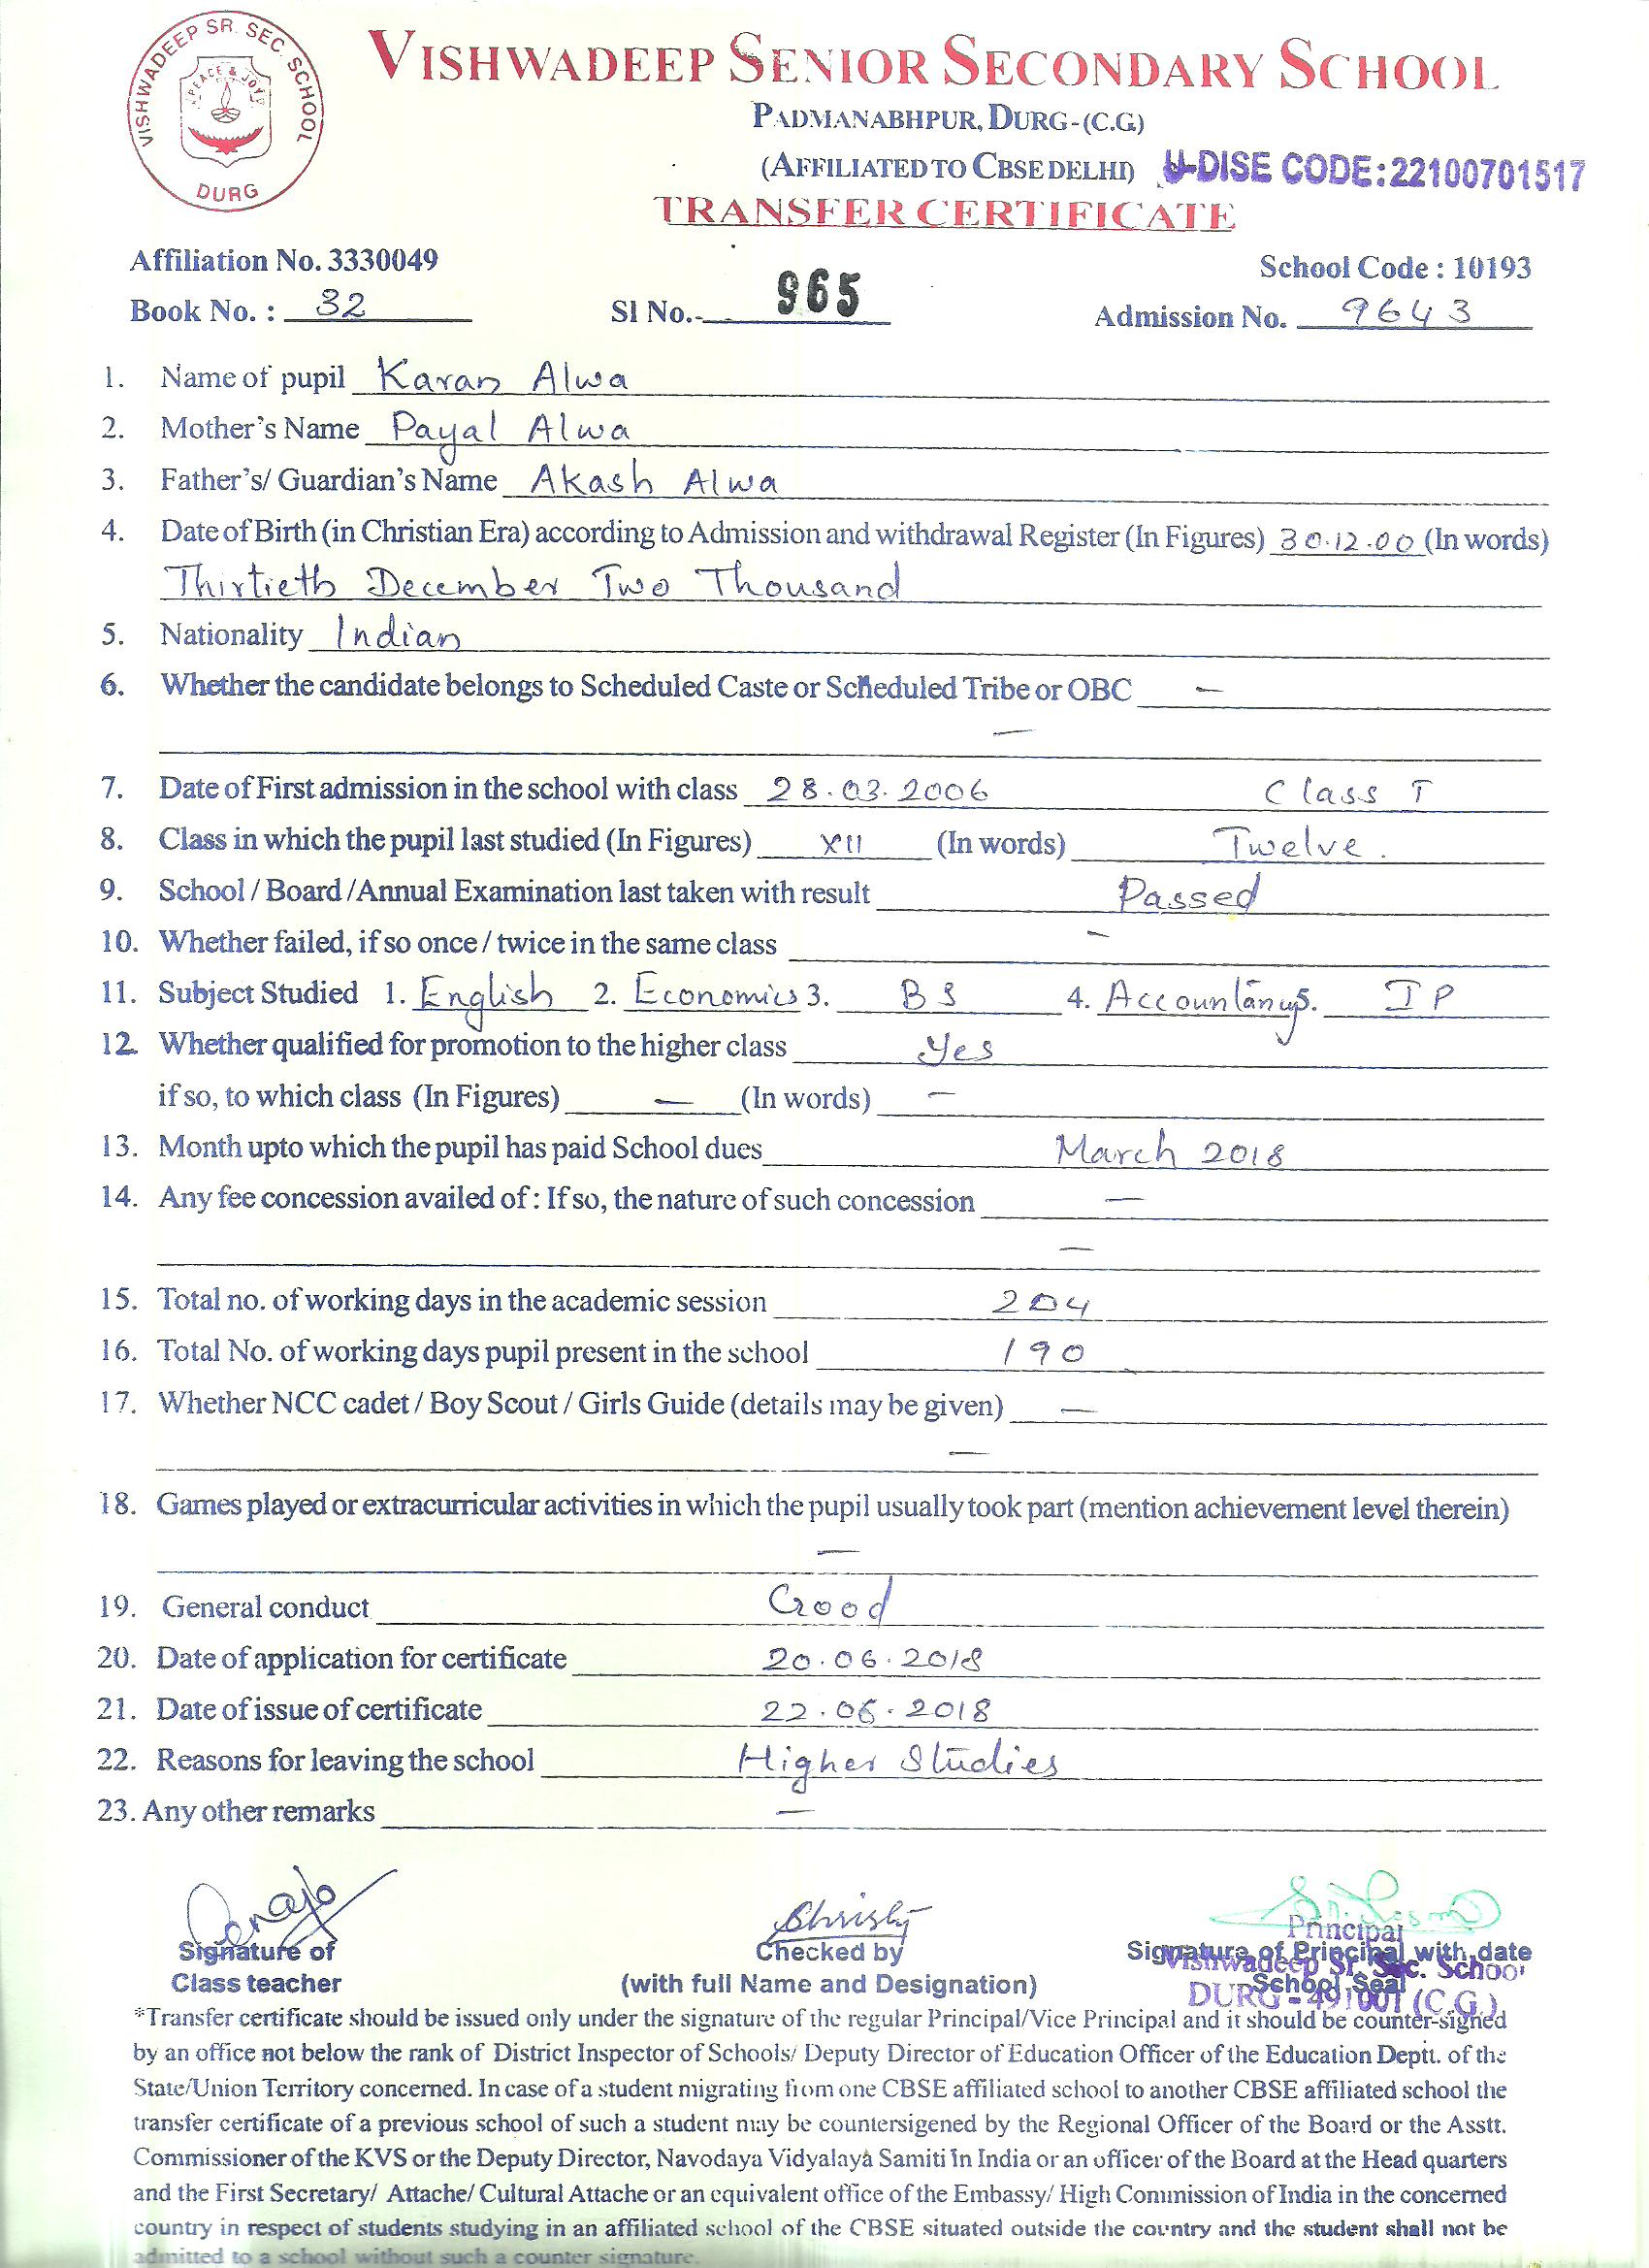 VISHWADEEP SR. SEC. SCHOOL
PEACE & JOY
DURG
VISHWADEEP SENIOR SECONDARY SCHOOL
PADMANABHPUR, DURG-(C.G.)
(AFFILIATED TO CBSE DELHI) U-DISE CODE:22100701517
TRANSFER CERTIFICATE
Affiliation No. 3330049 School Code : 10193
Book No. : 32 Sl No.- 965 Admission No. 9643
1. Name of pupil Karan Alwa
2. Mother's Name Payal Alwa
3. Father's/ Guardian's Name Akash Alwa
4. Date of Birth (in Christian Era) according to Admission and withdrawal Register (In Figures) 30.12.00 (In words)
Thirtieth December Two Thousand
5. Nationality Indian
6. Whether the candidate belongs to Scheduled Caste or Scheduled Tribe or OBC —
—
7. Date of First admission in the school with class 28.03.2006 Class I
8. Class in which the pupil last studied (In Figures) XII (In words) Twelve.
9. School / Board /Annual Examination last taken with result Passed
10. Whether failed, if so once / twice in the same class —
11. Subject Studied 1. English 2. Economics 3. BS 4. Accountancy 5. IP
12. Whether qualified for promotion to the higher class Yes
if so, to which class (In Figures) — (In words) —
13. Month upto which the pupil has paid School dues March 2018
14. Any fee concession availed of : If so, the nature of such concession —
—
15. Total no. of working days in the academic session 204
16. Total No. of working days pupil present in the school 190
17. Whether NCC cadet / Boy Scout / Girls Guide (details may be given) —
—
18. Games played or extracurricular activities in which the pupil usually took part (mention achievement level therein)
—
19. General conduct Good
20. Date of application for certificate 20.06.2018
21. Date of issue of certificate 22.06.2018
22. Reasons for leaving the school Higher Studies
23. Any other remarks —
Christy
Principal
Signature of Checked by Signature of Principal with date
Vishwadeep Sr. Sec. School
Class teacher (with full Name and Designation) School Seal
DURG - 491001 (C.G.)
*Transfer certificate should be issued only under the signature of the regular Principal/Vice Principal and it should be counter-signed
by an office not below the rank of District Inspector of Schools/ Deputy Director of Education Officer of the Education Deptt. of the
State/Union Territory concerned. In case of a student migrating from one CBSE affiliated school to another CBSE affiliated school the
transfer certificate of a previous school of such a student may be countersigened by the Regional Officer of the Board or the Asstt.
Commissioner of the KVS or the Deputy Director, Navodaya Vidyalaya Samiti in India or an officer of the Board at the Head quarters
and the First Secretary/ Attache/ Cultural Attache or an equivalent office of the Embassy/ High Commission of India in the concerned
country in respect of students studying in an affiliated school of the CBSE situated outside the country and the student shall not be
admitted to a school without such a counter signature.